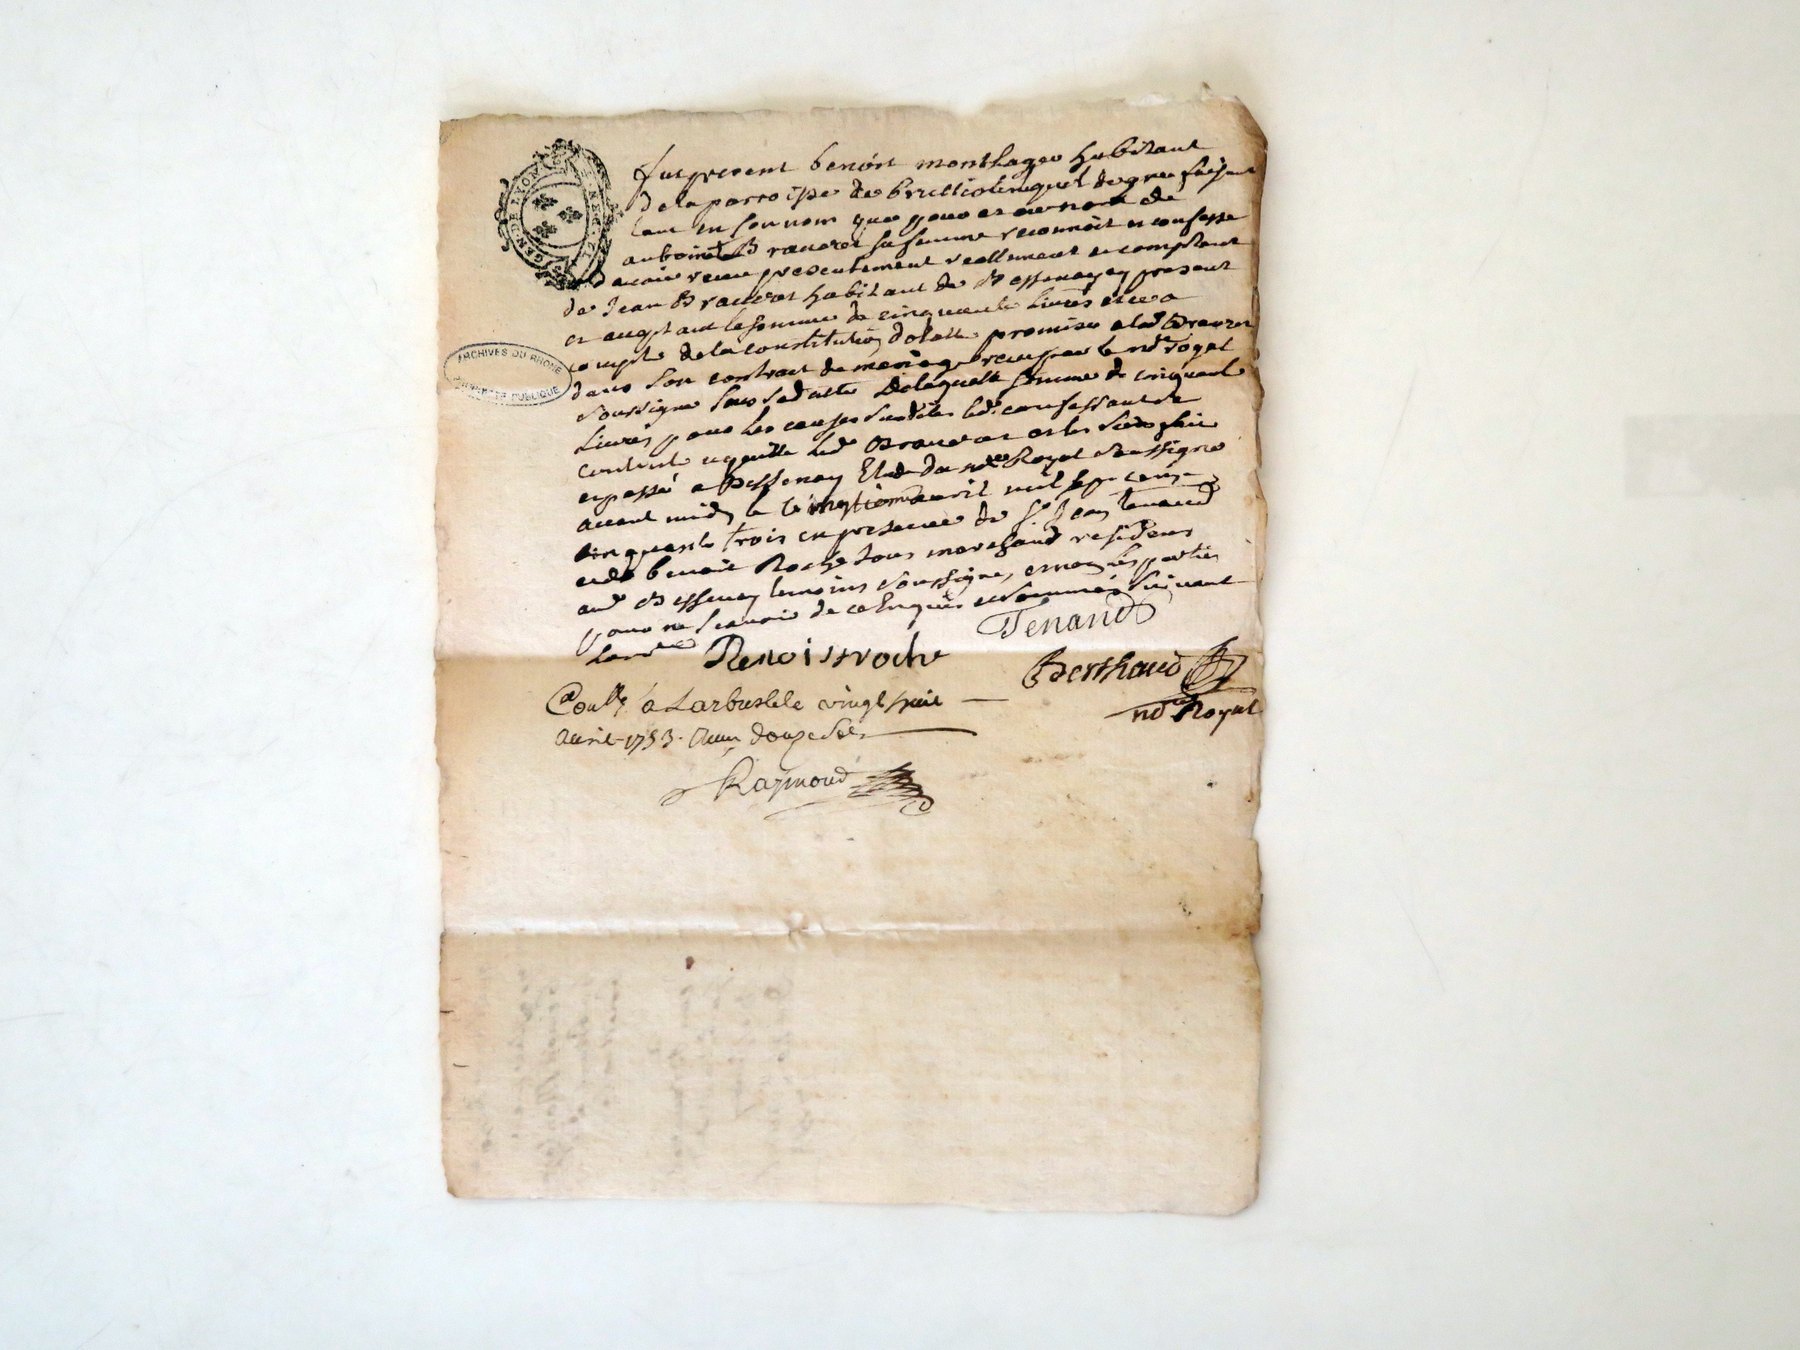 GEN. DE LYON
ARCHIVES DU RHONE
PUBLIQUE
fut present benoist monthager habitant
de la parroisse de lequel de gré faisant
tant en son nom que pour et au nom de
antoinete Braueret sa femme reconnoit et confesse
davoir receu presentement reellement et comptant
de Jean Braueret habitant de Bessenay present
et acceptant la somme de cinquante livres et ce a
compte de la constitution dotalle promise a lad Braueret
dans son contract de mariage receu par le nore royal
soussigné sous sa datte de laquelle somme de cinquante
livres pour les causes susdites led. confessant se
contente et quitte led Braueret et les siens
et passé a Bessenay Etude du nore Royal soussigné
avant midy le vingtieme avril mil sept cens
cinquante trois en presence de sr Jean Tenaud
et de benoit Roche tous marchand residens
aud Bessenay temoins soussignes, et non les parties
pour ne scavoir de ce Enquis et sommés suivant
Tenaud
Benoist roche
Berthaud
nore Royal
Conlle a Larbresle le vingt huit
Avril 1753. Reçu douze sols
Raymond